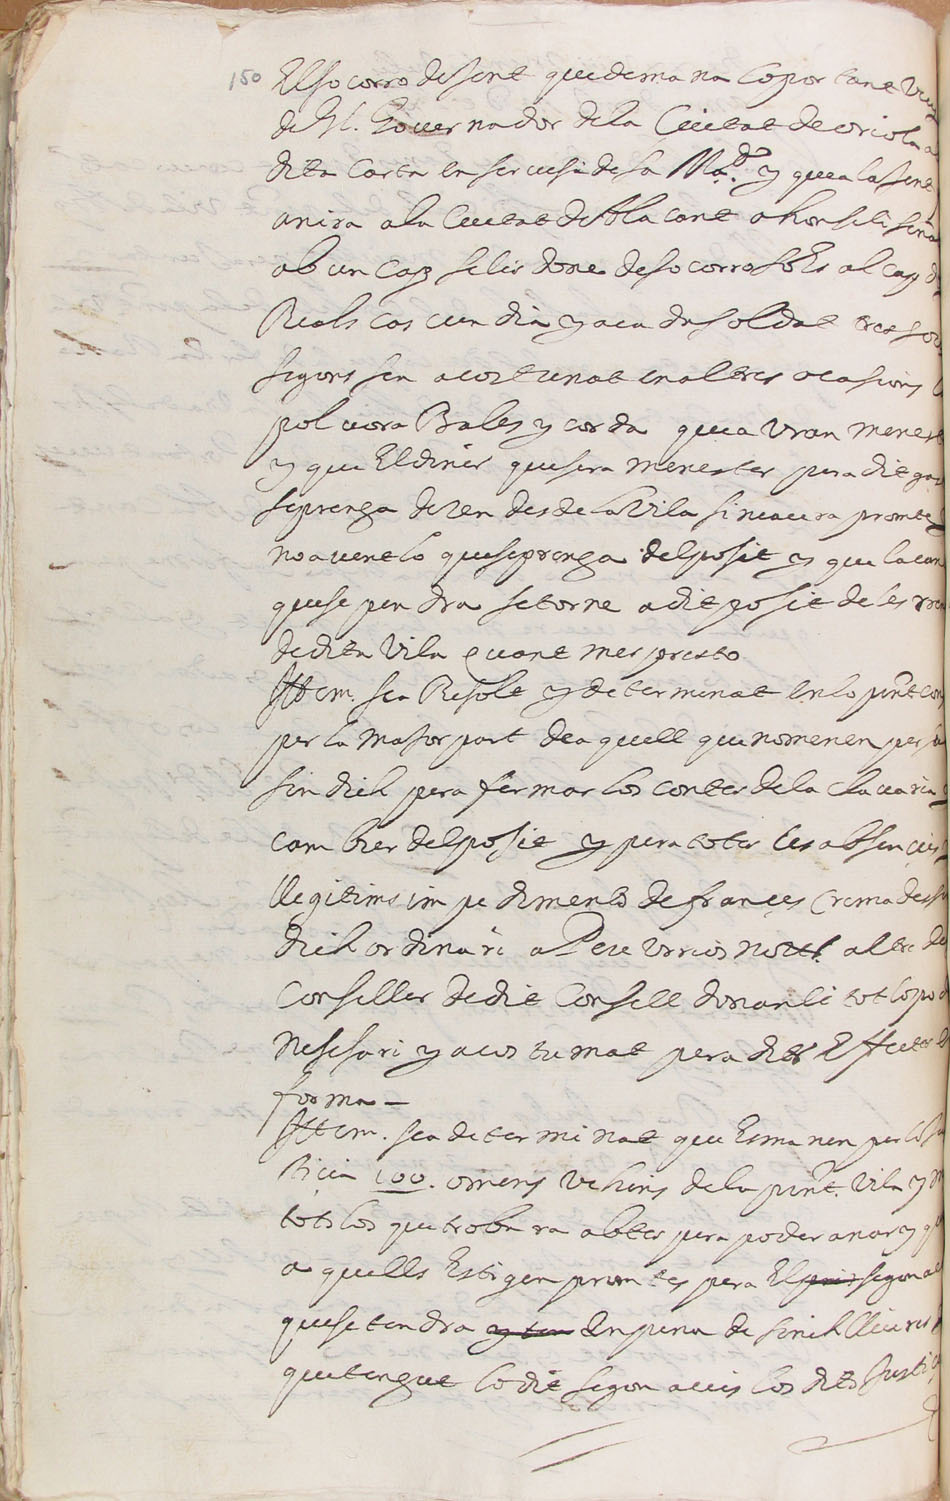 150
El socorro de sent que demana lo portant veus
de N. Governador de la Ciutat de oriola a
dita Carta en servesi de sa Mag.d y que a la sent
anira a la Ciutat de Alacant a hon seli
ab un Cap seli done de socorro so Es al cap
Reals cascun dia y a ca de soldat tres sous
segons sen a costumat en altres ocasions
polvora Bales y corda que auran menester
y que El diner que sera menester pera dit
se prenga de ren des de la Vila si ni aura prompte
no avent lo que se prenga del posit y que la can
que se pendra se torne a dit posit de les ren
de dita Vila quant mes presto
Ittem. sea Resolt y determinat en lo pnt con
per la Masor part de aquell que nomenen per
sindich pera fermar los contes de la clavaria y
cambrer del posit y pera totes les absencies y
llegitims impediments de frances Cremades sin
dich ordinari a Pere Urios nott. altre de
Consellers de dit Consell donanli tot lo po
Nesesari y acostumat pera dits Effectes
forma —
Ittem. sea determinat que Esmanen per lo
100. omens vehins de la pnt. Vila y
tots los que trobara abtes pera poder anar y
aquells Estigen promtes pera El segon
que se tendra En pena de sinch lliures
que tengut lo dit segon avis los dits Justi